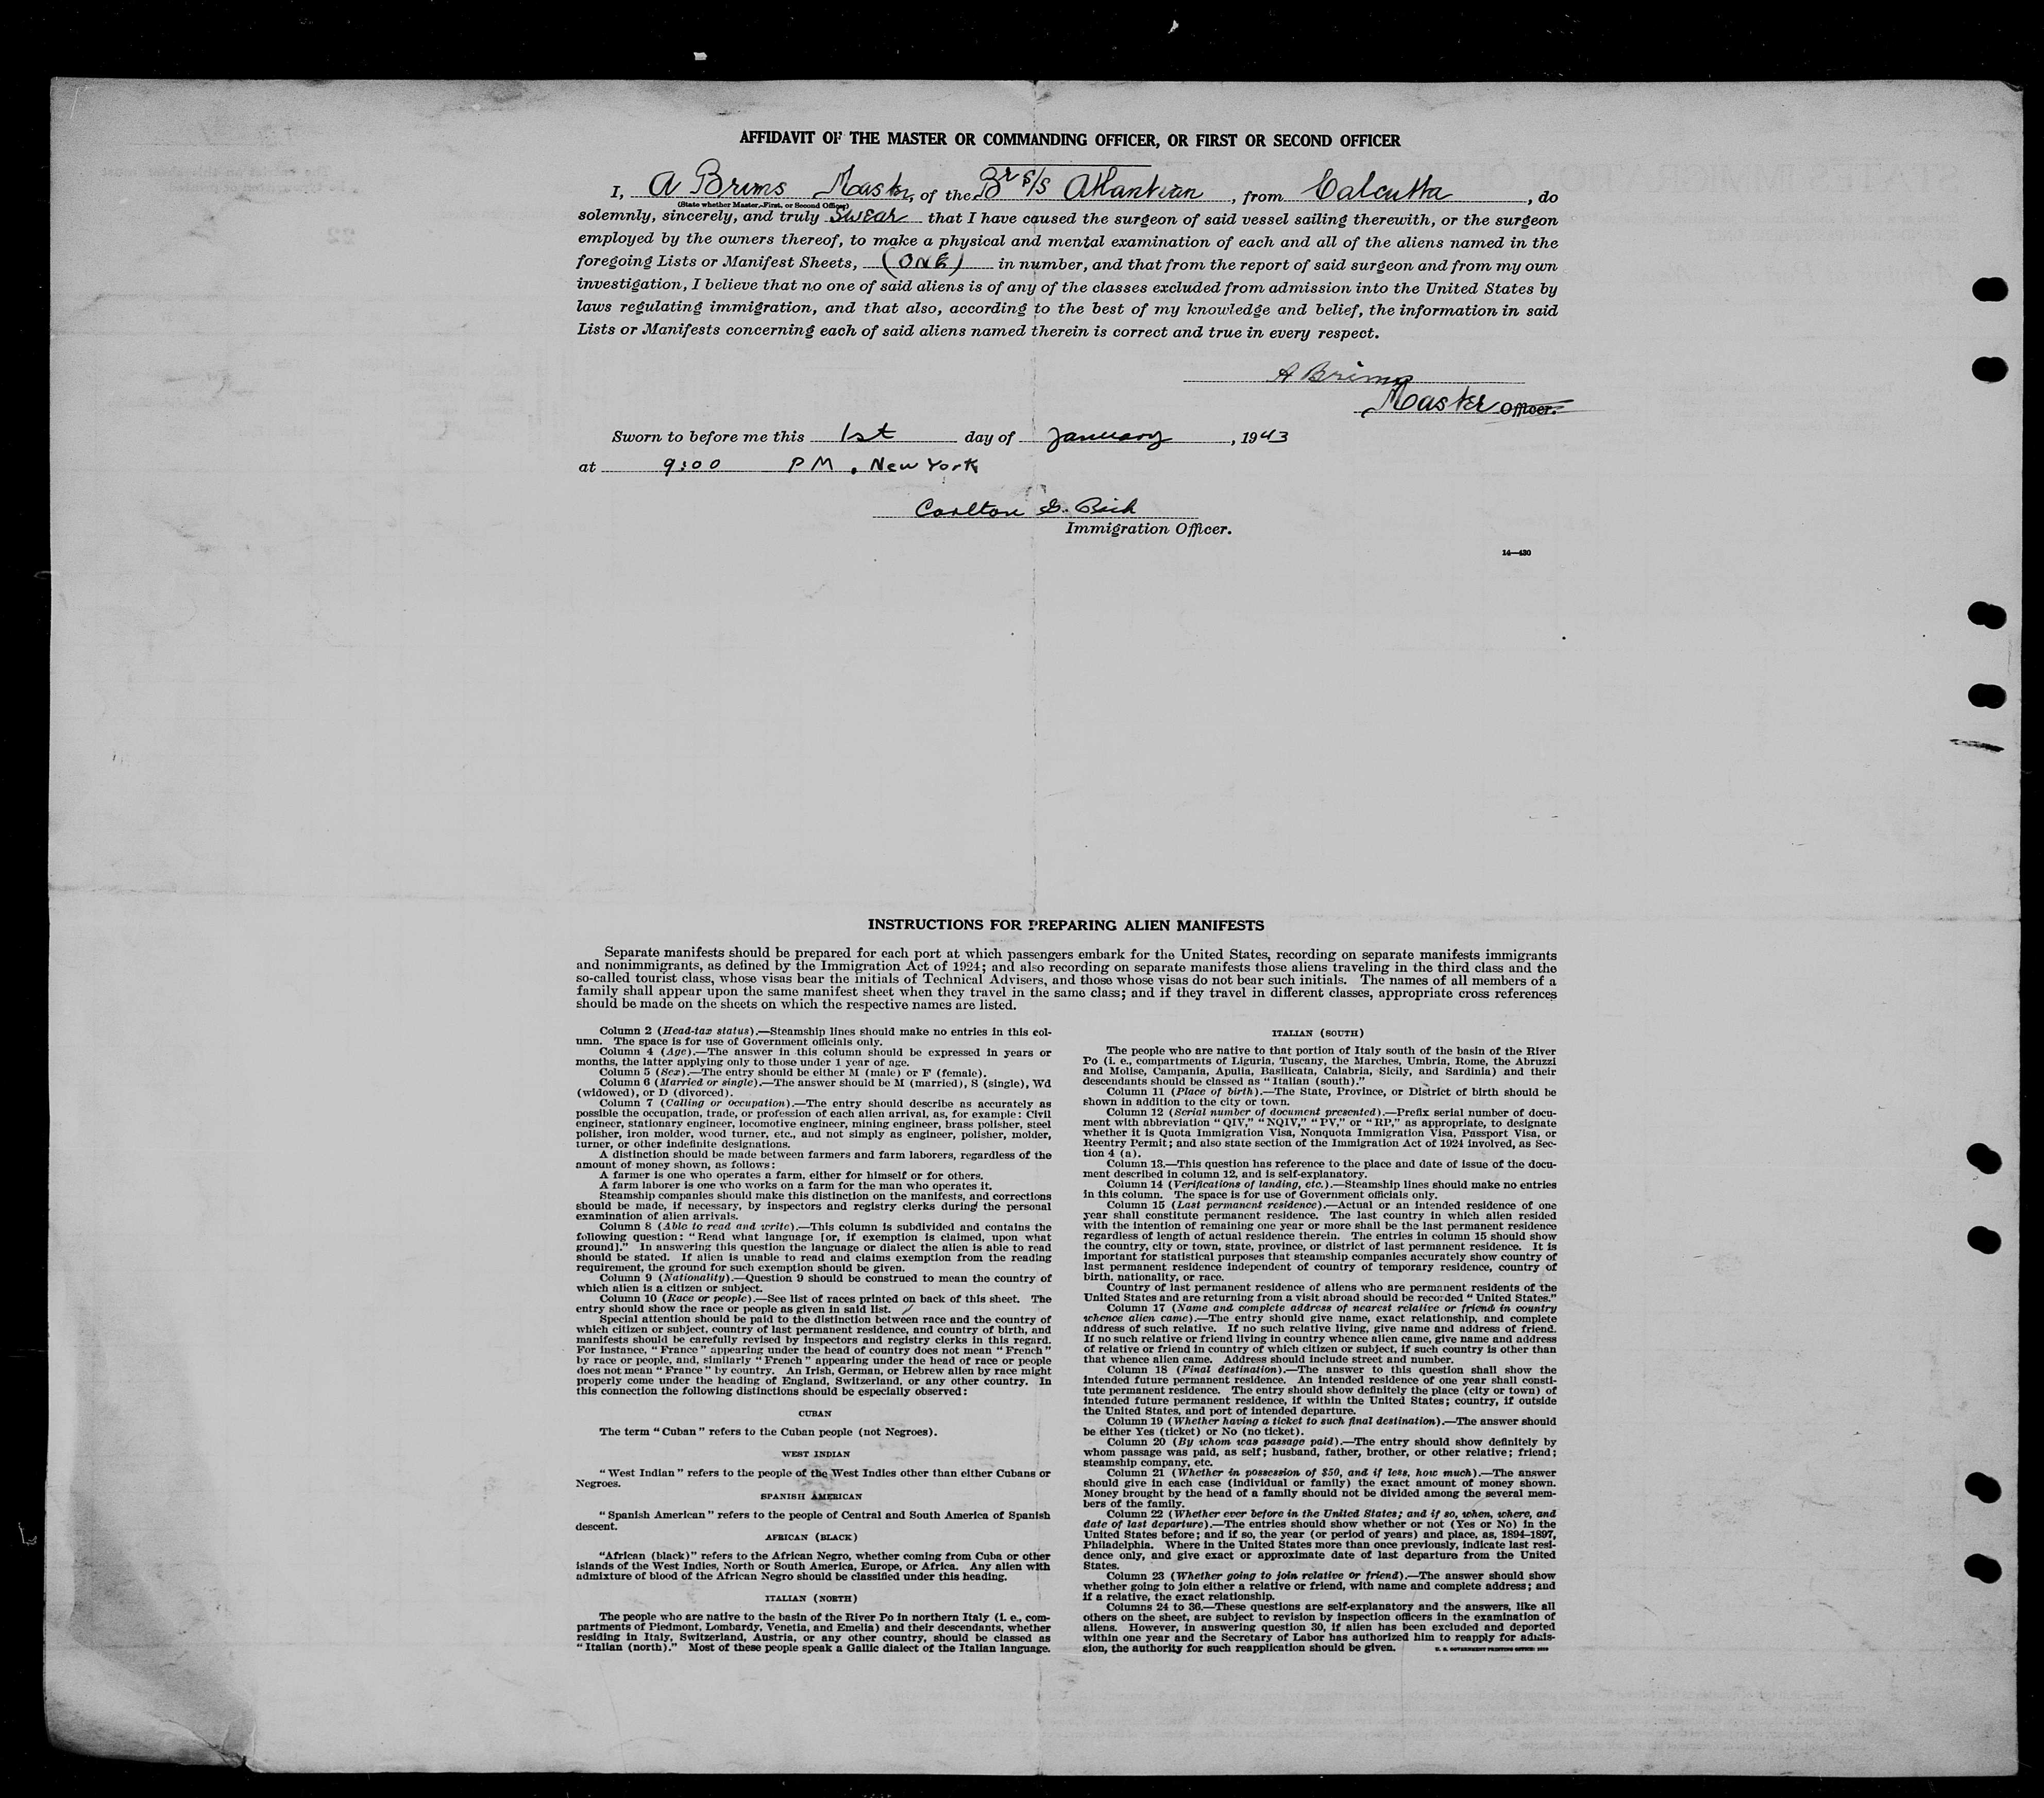 AFFIDAVIT OF THE MASTER OR COMMANDING OFFICER, OR FIRST OR SECOND OFFICER
I, A Brims Master, of the Br S/S Atlantian, from Calcutta, do
(State whether Master, First, or Second Officer)
solemnly, sincerely, and truly swear that I have caused the surgeon of said vessel sailing therewith, or the surgeon
employed by the owners thereof, to make a physical and mental examination of each and all of the aliens named in the
foregoing Lists or Manifest Sheets, (ONE) in number, and that from the report of said surgeon and from my own
investigation, I believe that no one of said aliens is of any of the classes excluded from admission into the United States by
laws regulating immigration, and that also, according to the best of my knowledge and belief, the information in said
Lists or Manifests concerning each of said aliens named therein is correct and true in every respect.
A Brims
Master Officer.
Sworn to before me this 1st day of January, 1943
at 9:00 PM, New York
Carlton
Immigration Officer.
14—430
INSTRUCTIONS FOR PREPARING ALIEN MANIFESTS
Separate manifests should be prepared for each port at which passengers embark for the United States, recording on separate manifests immigrants
and nonimmigrants, as defined by the Immigration Act of 1924; and also recording on separate manifests those aliens traveling in the third class and the
so-called tourist class, whose visas bear the initials of Technical Advisers, and those whose visas do not bear such initials. The names of all members of a
family shall appear upon the same manifest sheet when they travel in the same class; and if they travel in different classes, appropriate cross references
should be made on the sheets on which the respective names are listed.
Column 2 (Head-tax status).—Steamship lines should make no entries in this col-
umn. The space is for use of Government officials only.
Column 4 (Age).—The answer in this column should be expressed in years or
months, the latter applying only to those under 1 year of age.
Column 5 (Sex).—The entry should be either M (male) or F (female).
Column 6 (Married or single).—The answer should be M (married), S (single), Wd
(widowed), or D (divorced).
Column 7 (Calling or occupation).—The entry should describe as accurately as
possible the occupation, trade, or profession of each alien arrival, as, for example: Civil
engineer, stationary engineer, locomotive engineer, mining engineer, brass polisher, steel
polisher, iron molder, wood turner, etc., and not simply as engineer, polisher, molder,
turner, or other indefinite designations.
A distinction should be made between farmers and farm laborers, regardless of the
amount of money shown, as follows:
A farmer is one who operates a farm, either for himself or for others.
A farm laborer is one who works on a farm for the man who operates it.
Steamship companies should make this distinction on the manifests, and corrections
should be made, if necessary, by inspectors and registry clerks during the personal
examination of alien arrivals.
Column 8 (Able to read and write).—This column is subdivided and contains the
following question: "Read what language [or, if exemption is claimed, upon what
ground]." In answering this question the language or dialect the alien is able to read
should be stated. If alien is unable to read and claims exemption from the reading
requirement, the ground for such exemption should be given.
Column 9 (Nationality).—Question 9 should be construed to mean the country of
which alien is a citizen or subject.
Column 10 (Race or people).—See list of races printed on back of this sheet. The
entry should show the race or people as given in said list.
Special attention should be paid to the distinction between race and the country of
which citizen or subject, country of last permanent residence, and country of birth, and
manifests should be carefully revised by inspectors and registry clerks in this regard.
For instance, "France" appearing under the head of country does not mean "French"
by race or people, and, similarly "French" appearing under the head of race or people
does not mean "France" by country. An Irish, German, or Hebrew alien by race might
properly come under the heading of England, Switzerland, or any other country. In
this connection the following distinctions should be especially observed:
CUBAN
The term "Cuban" refers to the Cuban people (not Negroes).
WEST INDIAN
"West Indian" refers to the people of the West Indies other than either Cubans or
Negroes.
SPANISH AMERICAN
"Spanish American" refers to the people of Central and South America of Spanish
descent.
AFRICAN (BLACK)
"African (black)" refers to the African Negro, whether coming from Cuba or other
islands of the West Indies, North or South America, Europe, or Africa. Any alien with
admixture of blood of the African Negro should be classified under this heading.
ITALIAN (NORTH)
The people who are native to the basin of the River Po in northern Italy (i. e., com-
partments of Piedmont, Lombardy, Venetia, and Emelia) and their descendants, whether
residing in Italy, Switzerland, Austria, or any other country, should be classed as
"Italian (north)." Most of these people speak a Gallic dialect of the Italian language.
ITALIAN (SOUTH)
The people who are native to that portion of Italy south of the basin of the River
Po (i. e., compartments of Liguria, Tuscany, the Marches, Umbria, Rome, the Abruzzi
and Molise, Campania, Apulia, Basilicata, Calabria, Sicily, and Sardinia) and their
descendants should be classed as "Italian (south)."
Column 11 (Place of birth).—The State, Province, or District of birth should be
shown in addition to the city or town.
Column 12 (Serial number of document presented).—Prefix serial number of docu-
ment with abbreviation "QIV," "NQIV," "PV," or "RP," as appropriate, to designate
whether it is Quota Immigration Visa, Nonquota Immigration Visa, Passport Visa, or
Reentry Permit; and also state section of the Immigration Act of 1924 involved, as Sec-
tion 4 (a).
Column 13.—This question has reference to the place and date of issue of the docu-
ment described in column 12, and is self-explanatory.
Column 14 (Verifications of landing, etc.).—Steamship lines should make no entries
in this column. The space is for use of Government officials only.
Column 15 (Last permanent residence).—Actual or an intended residence of one
year shall constitute permanent residence. The last country in which alien resided
with the intention of remaining one year or more shall be the last permanent residence
regardless of length of actual residence therein. The entries in column 15 should show
the country, city or town, state, province, or district of last permanent residence. It is
important for statistical purposes that steamship companies accurately show country of
last permanent residence independent of country of temporary residence, country of
birth, nationality, or race.
Country of last permanent residence of aliens who are permanent residents of the
United States and are returning from a visit abroad should be recorded "United States."
Column 17 (Name and complete address of nearest relative or friend in country
whence alien came).—The entry should give name, exact relationship, and complete
address of such relative. If no such relative living, give name and address of friend.
If no such relative or friend living in country whence alien came, give name and address
of relative or friend in country of which citizen or subject, if such country is other than
that whence alien came. Address should include street and number.
Column 18 (Final destination).—The answer to this question shall show the
intended future permanent residence. An intended residence of one year shall consti-
tute permanent residence. The entry should show definitely the place (city or town) of
intended future permanent residence, if within the United States; country, if outside
the United States, and port of intended departure.
Column 19 (Whether having a ticket to such final destination).—The answer should
be either Yes (ticket) or No (no ticket).
Column 20 (By whom was passage paid).—The entry should show definitely by
whom passage was paid, as self; husband, father, brother, or other relative; friend;
steamship company, etc.
Column 21 (Whether in possession of $50, and if less, how much).—The answer
should give in each case (individual or family) the exact amount of money shown.
Money brought by the head of a family should not be divided among the several mem-
bers of the family.
Column 22 (Whether ever before in the United States; and if so, when, where, and
date of last departure).—The entries should show whether or not (Yes or No) in the
United States before; and if so, the year (or period of years) and place, as, 1894–1897,
Philadelphia. Where in the United States more than once previously, indicate last resi-
dence only, and give exact or approximate date of last departure from the United
States.
Column 23 (Whether going to join relative or friend).—The answer should show
whether going to join either a relative or friend, with name and complete address; and
if a relative, the exact relationship.
Columns 24 to 36.—These questions are self-explanatory and the answers, like all
others on the sheet, are subject to revision by inspection officers in the examination of
aliens. However, in answering question 30, if alien has been excluded and deported
within one year and the Secretary of Labor has authorized him to reapply for admis-
sion, the authority for such reapplication should be given.
U. S. GOVERNMENT PRINTING OFFICE